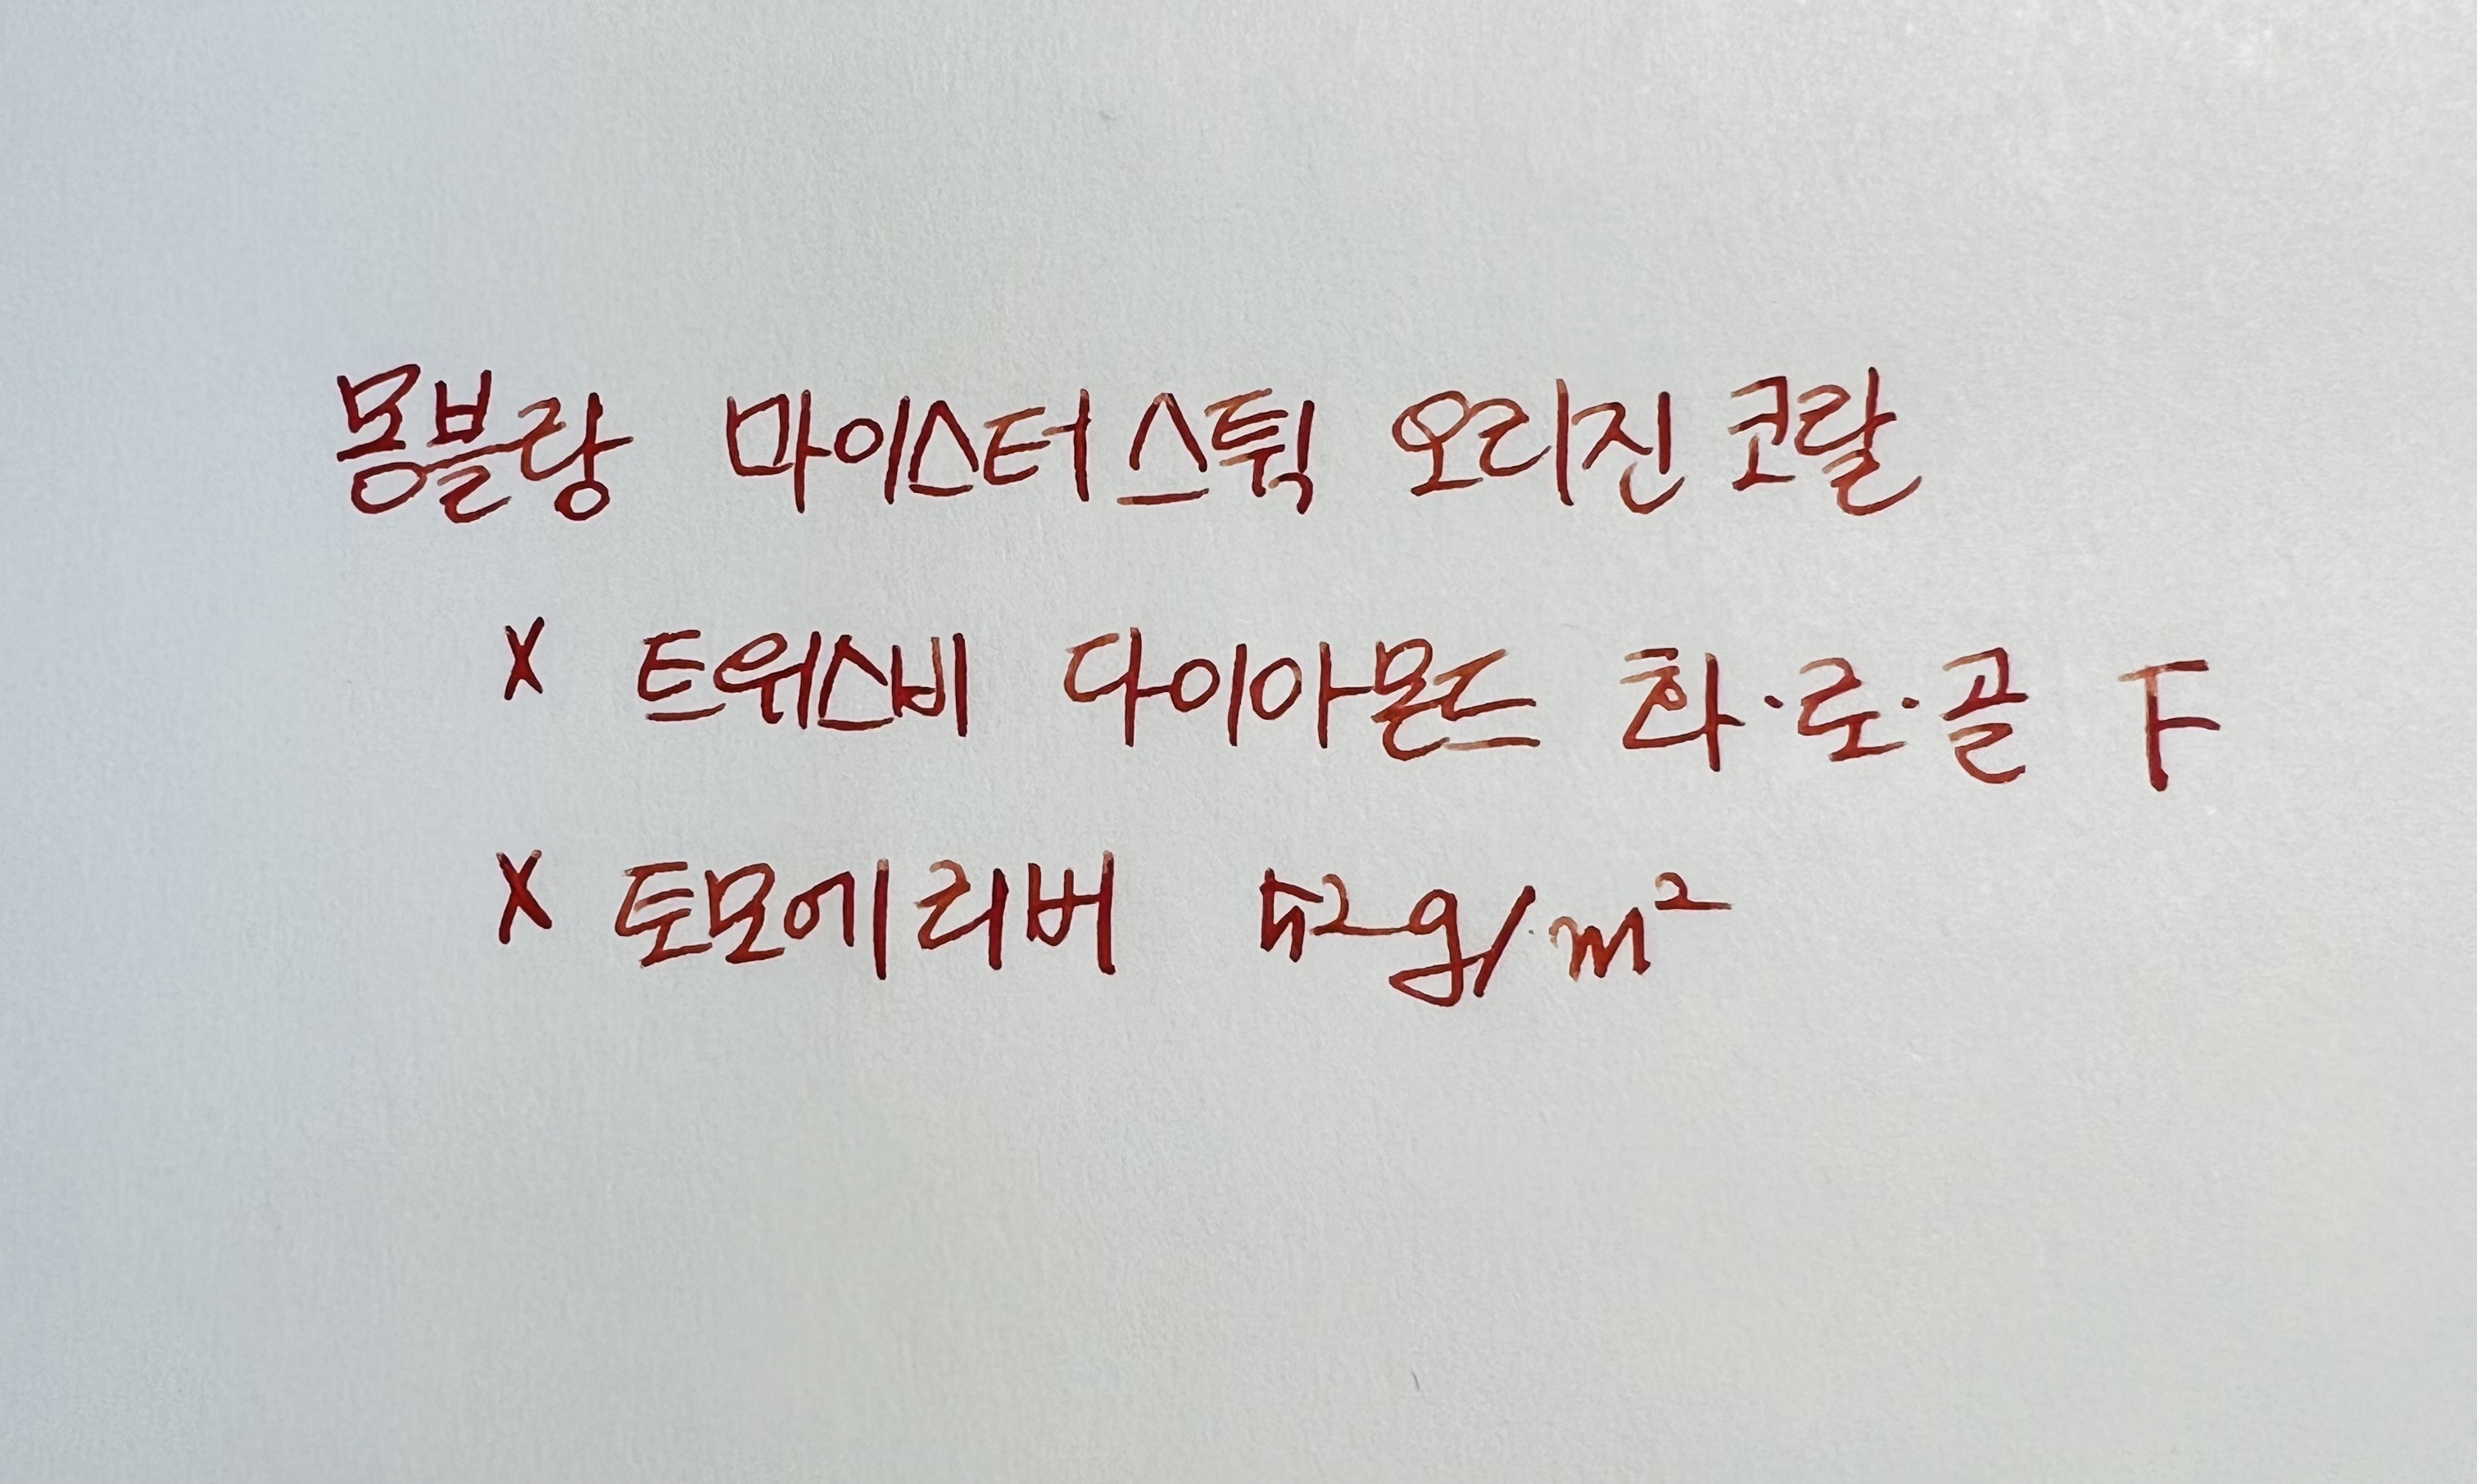 몽블랑 마이스터스튁 오리진 코랄
x 트위스비 다이아몬드 화·로·골 F
x 토모에리버 52g/m²